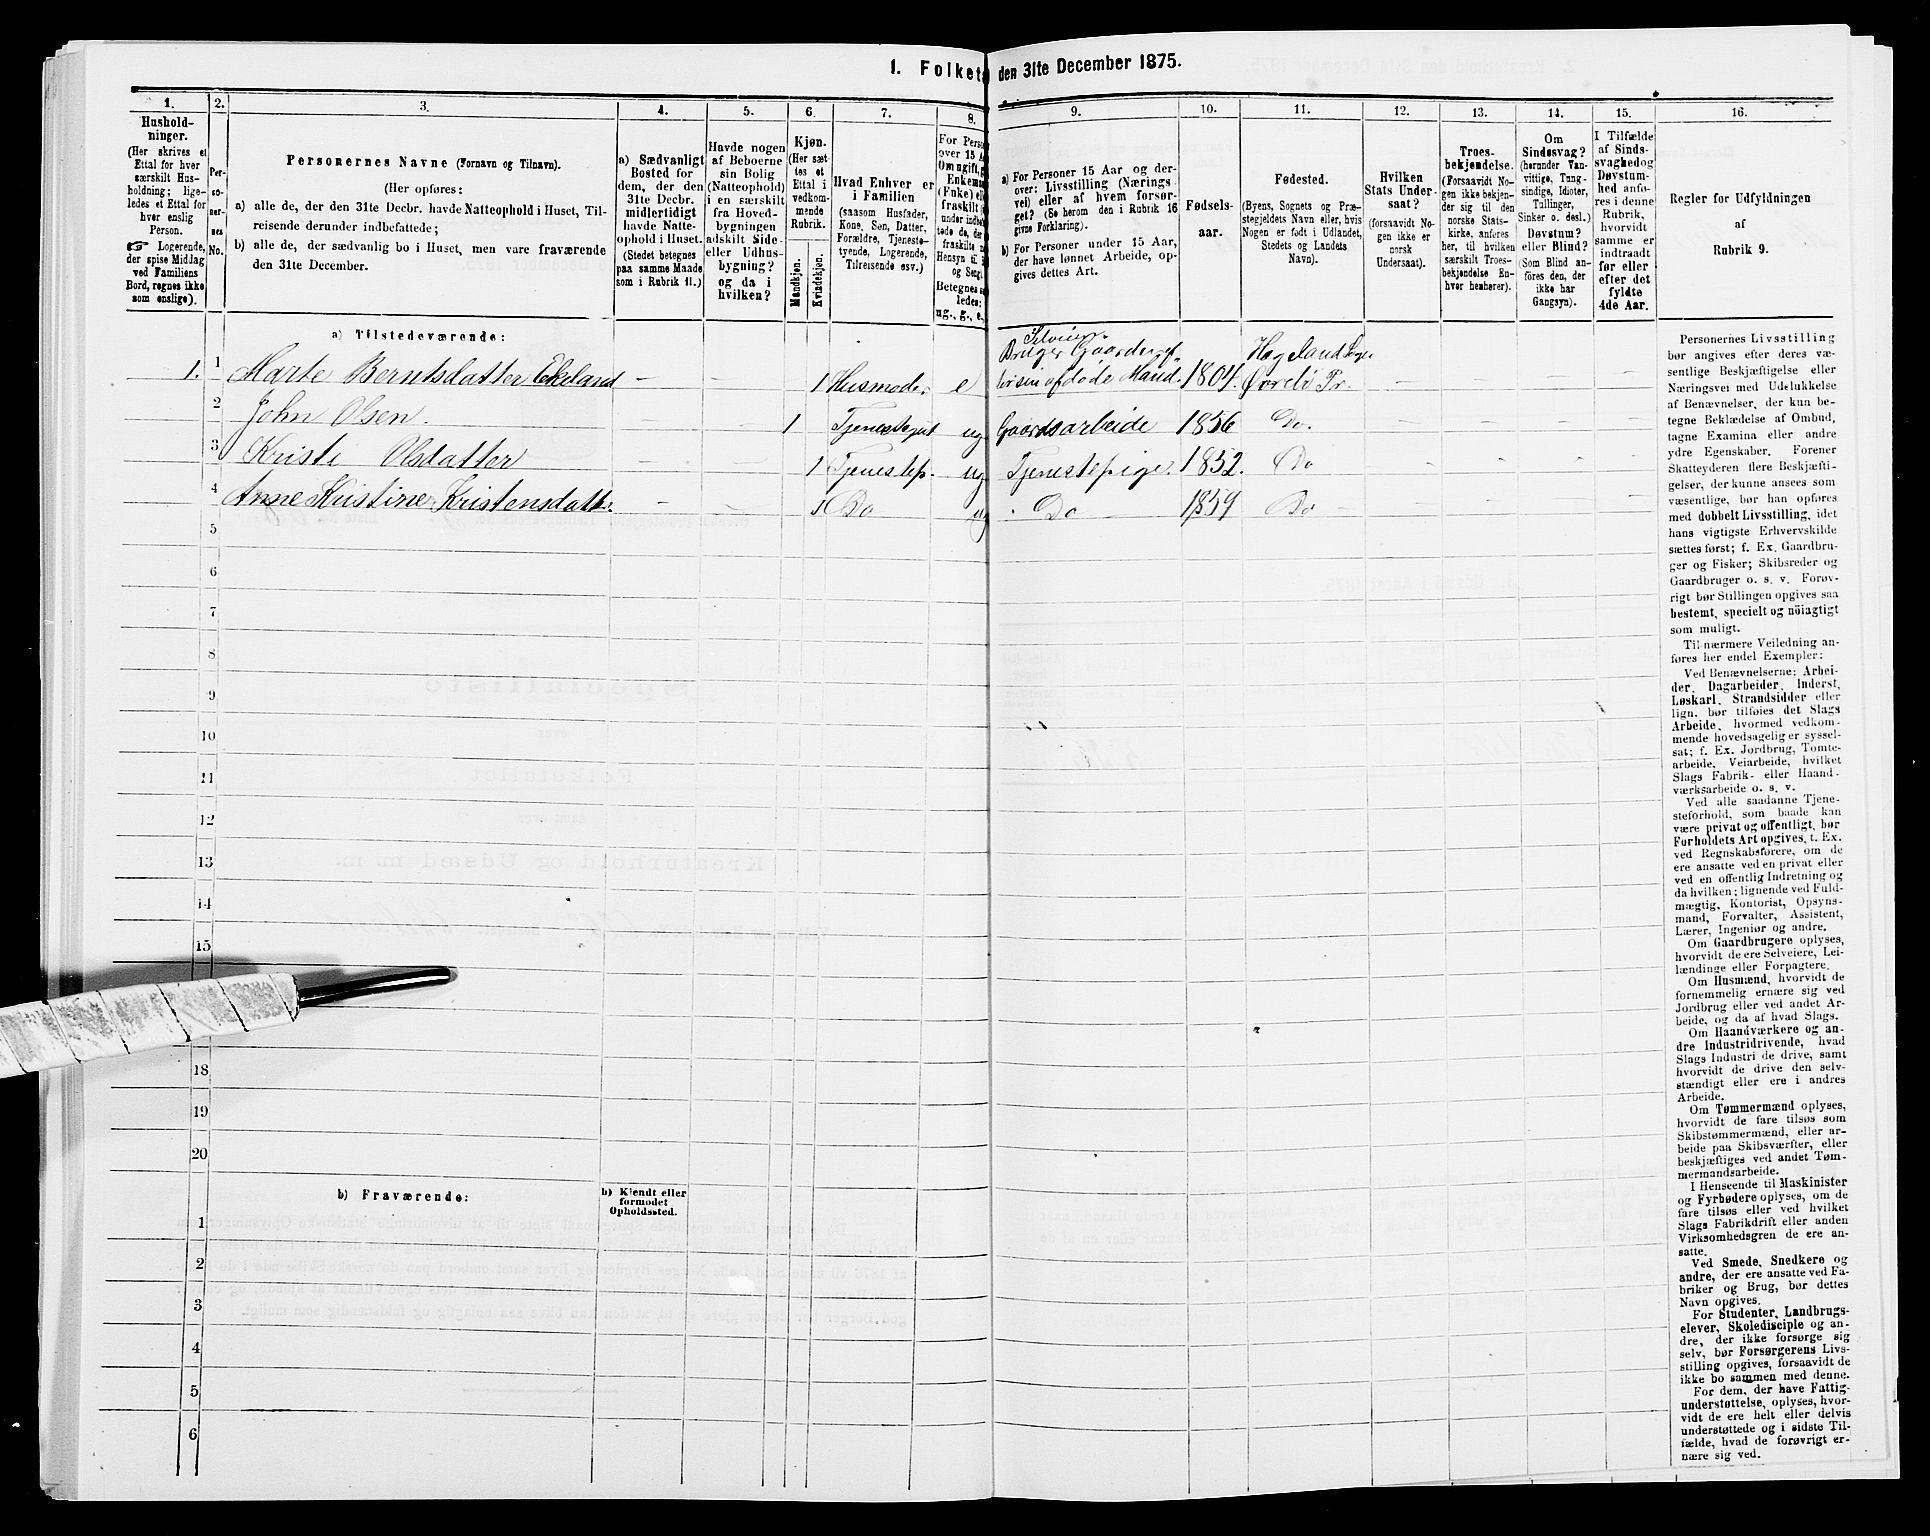 1. Folketæ den 31te December 1875.
1. 2. 3. 4. 5. 6. 7. 8. 9. 10. 11. 12. 13. 14. 15. 16.
Hushold-
ninger.
(Her skrives et
Ettal for hver
særskilt Hus-
holdning; lige-
ledes et Ettal for
hver enslig
Person.
☞ Logerende,
der spise Middag
ved Familiens
Bord, regnes ikke
som enslige).
Per-
so-
ner-
nes
No.
Personernes Navne (Fornavn og Tilnavn).
(Her opføres:
a) alle de, der den 31te Decbr. havde Natteophold i Huset, Til-
reisende derunder indbefattede;
b) alle de, der sædvanlig bo i Huset, men vare fraværende
den 31te December.
a) Sædvanligt
Bosted for
dem, der den
31te Decbr.
midlertidigt
havde Natte-
ophold i Huset.
(Stedet betegnes
paa samme Maade
som i Rubrik 11.)
Havde nogen
af Beboerne
sin Bolig
(Natteophold)
i en særskilt
fra Hoved-
bygningen
adskilt Side-
eller Udhus-
bygning?
og da i
hvilken?
Kjøn.
(Her sæt-
tes et
Ettal i
vedkom-
mende
Rubrik.
Mandkjøn.
Kvindekjøn.
Hvad Enhver er
i Familien
(saasom Husfader,
Kone, Søn, Datter,
Forældre, Tjeneste-
tyende, Logerende,
Tilreisende osv.)
For Perso
over 15 A
Om ugift, g
Enkema
(Enke) el
fraskilt
under indbe
tede de, de
fraskilte
Hensyn til
og Seng
Betegnes s
ledes:
ug., g., e.,
a) For Personer 15 Aar og der-
over: Livsstilling (Nærings-
vei) eller af hvem forsør-
get? (Se herom den i Rubrik 16
givne Forklaring).
b) For Personer under 15 Aar,
der have lønnet Arbeide, op-
gives dettes Art.
Fødsels-
aar.
Fødested.
(Byens, Sognets og Præ-
stegjeldets Navn eller, hvis
Nogen er født i Udlandet,
Stedets og Landets
Navn).
Hvilken
Stats Under-
saat?
(forsaavidt No-
gen ikke er
norsk
Undersaat).
Troes-
bekjendelse.
(Forsaavidt No-
gen ikke bekjen-
der sig til den
norske Stats-
kirke, anføres
her, til hvilken
særskilt Troes-
bekjendelse En-
hver henhører).
Om
Sindssvag?
(herunder Van-
vittige, Tung-
sindige, Idioter,
Tullinger,
Sinker o. desl.)
Døvstum?
eller Blind?
(Som Blind an-
føres den, der
ikke har
Gangsyn).
I Tilfælde
af Sinds-
svaghed og
Døvstum-
hed anfø-
res i denne
Rubrik,
hvorvidt
samme er
indtraadt
før eller
efter det
fyldte
4de Aar.
Regler for Udfyldningen
af
Rubrik 9.
a) Tilstedeværende:
1. 1 Marte Berntsdatter Ekeland — — 1 Husmoder e Bruger Gaarden efter sin afdøde Mand. 1804. Hægeland Sogn Øvrebø Pr. — — — —
2 John Olsen. — — 1 Tjenestegut ug Gaardsarbeide 1856 Do. — — — —
3 Kristi Olsdatter — — 1 Tjenestep. ug Tjenestepige. 1852. Do — — — —
4 Anne Kristine Kristensdatt. — — 1 Do ug Do — 1859 Do — — — — —
5
6
7
8
9
10
11
12
13
14
15
18
19
20
b) Fraværende:
b) Kjendt eller
formodet
Opholdssted.
1
2
3
4
5
6
Personernes Livsstilling
bør angives efter deres væ-
sentlige Beskjæftigelse eller
Næringsvei med Udelukkelse
af Benævnelser, der kun be-
tegne Beklædelse af Ombud,
tagne Examina eller andre
ydre Egenskaber. Forener
Skatteyderen flere Beskjæfti-
gelser, der kunne ansees som
væsentlige, bør han opføres
med dobbelt Livsstilling, idet
hans vigtigste Erhvervskilde
sættes først; f. Ex. Gaardbru-
ger og Fisker; Skibsreder og
Gaardbruger o. s. v. Forøv-
rigt bør Stillingen opgives saa
bestemt, specielt og nöiagtigt
som muligt.
Til nærmere Veiledning an-
føres her endel Exempler:
Ved Benævnelserne: Arbei-
der, Dagarbeider, Inderst,
Løskarl, Strandsidder eller
lign. bør tilføies det Slags
Arbeide, hvormed vedkom-
mende hovedsagelig er syssel-
sat; f. Ex. Jordbrug, Tomte-
arbeide, Veiarbeide, hvilket
Slags Fabrik- eller Haand-
værksarbeide o. s. v.
Ved alle saadanne Tjene-
steforhold, som baade kan
være privat og offentligt, bør
Forholdets Art opgives, t. Ex.
ved Regnskabsførere, om de
ere ansatte ved en privat eller
ved en offentlig Indretning og
da hvilken; lignende ved Fuld-
mægtig, Kontorist, Opsyns-
mand, Forvalter, Assistent,
Lærer, Ingeniør og andre.
Om Gaardbrugere oplyses,
hvorvidt de ere Selveiere, Lei-
lændinge eller Forpagtere.
Om Husmænd, hvorvidt de
fornemmelig ernære sig ved
Jordbrug eller ved andet Ar-
beide, og da af hvad Slags.
Om Haandværkere og an-
dre Industridrivende, hvad
Slags Industri de drive, samt
hvorvidt de drive den selv-
stændigt eller ere i andres
Arbeide.
Om Tømmermænd oplyses,
hvorvidt de fare tilsøs som
Skibstømmermænd, eller ar-
beide paa Skibsværfter, eller
beskjæftiges ved andet Tøm-
mermandsarbeide.
I Henseende til Maskinister
og Fyrbødere oplyses, om de
fare tilsøs eller ved hvilket
Slags Fabrikdrift eller anden
Virksomhedsgren de ere an-
satte.
Ved Smede, Snedkere og
andre, der ere ansatte ved Fa-
briker og Brug, bør dettes
Navn opgives.
For Studenter, Landbrugs-
elever, Skoledisciple og an-
dre, der ikke forsørge sig
selv, bør Forsørgerens Livs-
stilling opgives, forsaavidt de
ikke bo sammen med denne.
For dem, der have Fattig-
understøttelse, oplyses, hvor-
vidt de ere helt eller delvis
understøttede og i sidste Til-
fælde, hvad de forøvrigt er-
nære sig ved.